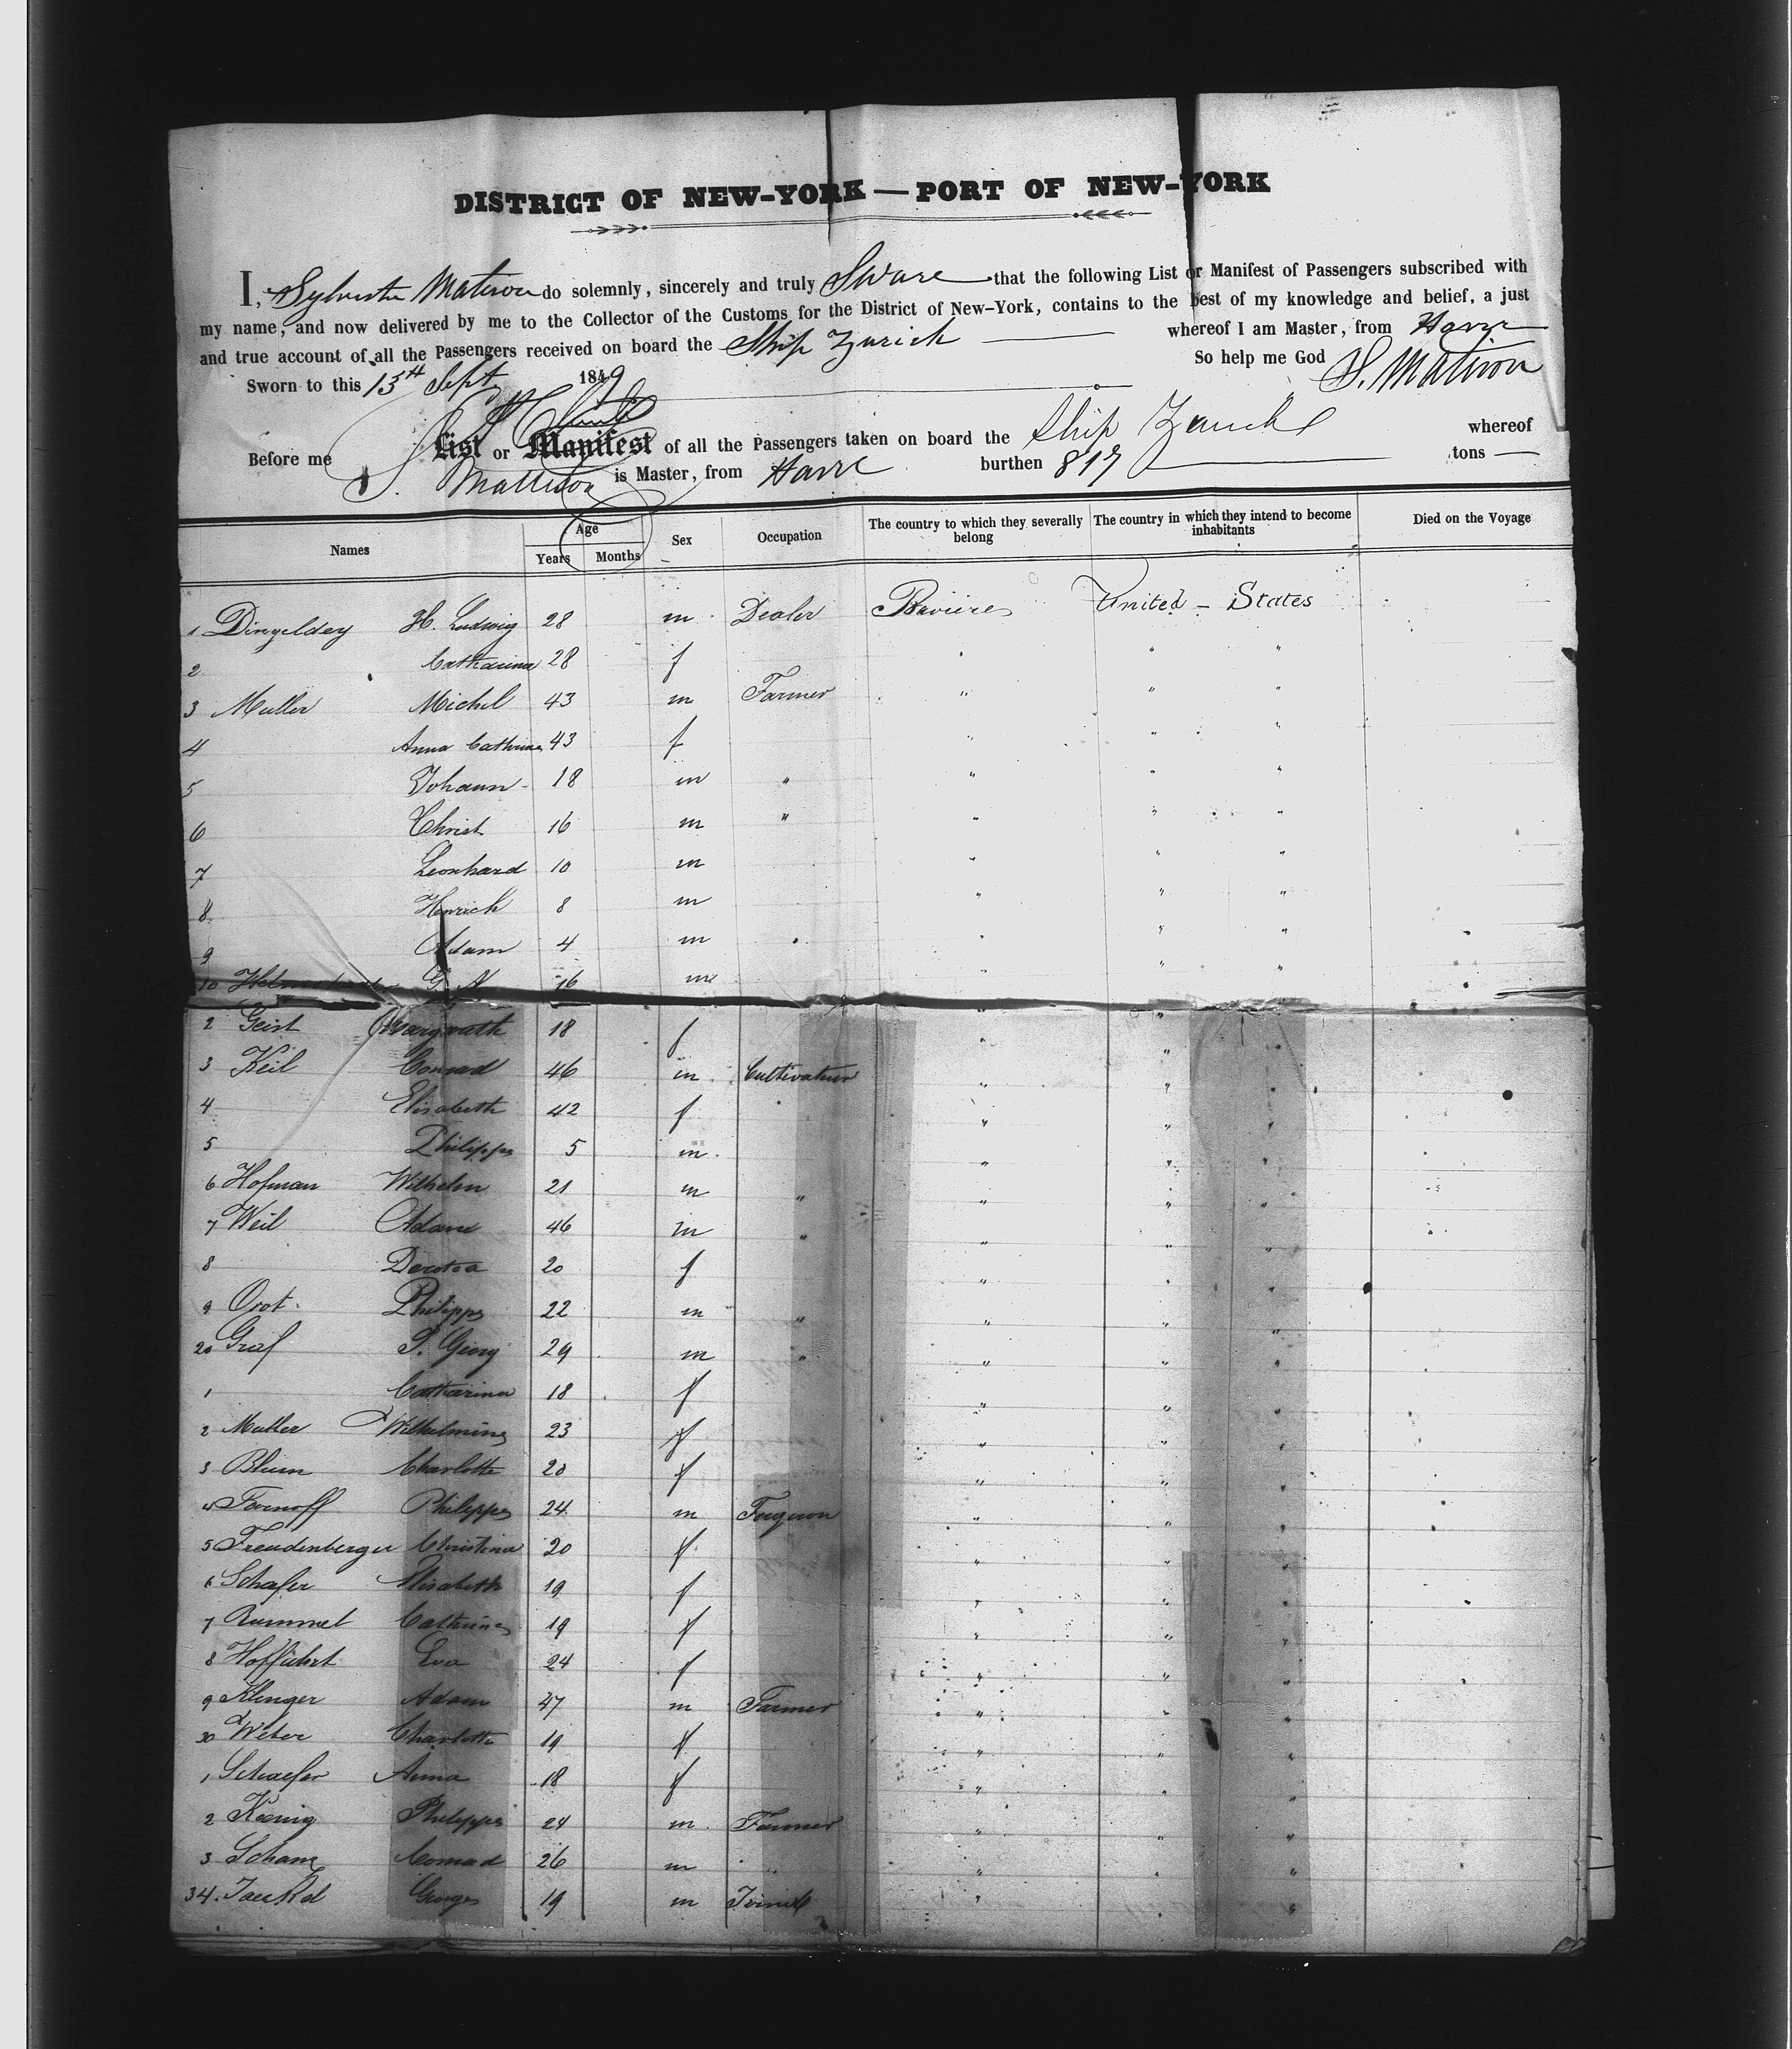 DISTRICT OF NEW-YORK — PORT OF NEW-YORK
I, Sylvester Matison do solemnly, sincerely and truly Sware that the following List or Manifest of Passengers subscribed with
my name, and now delivered by me to the Collector of the Customs for the District of New-York, contains to the best of my knowledge and belief, a just
and true account of all the Passengers received on board the Ship Zurich — whereof I am Master, from Havre
Sworn to this 13th Sept 1849 So help me God S. Matison
Before me
List or Manifest of all the Passengers taken on board the Ship Zurich whereof
S. Mattison is Master, from Havre burthen 817 — tons —
Names Age Years Months Sex Occupation The country to which they severally belong The country in which they intend to become inhabitants Died on the Voyage
1 Dingeldey H. Ludwig 28 m Dealer Baviere United - States
2 Catharina 28 f " " "
3 Muller Michel 43 m Farmer " " "
4 Anna Cathrine 43 f " " "
5 Johann 18 m " " " "
6 Christ 16 m " " " "
7 Leonhard 10 m " " "
8 Henrich 8 m " " "
9 Adam 4 m " " "
10 G. N 16 m " " "
2 Geist Margareth 18 f " " "
3 Keil Conrad 46 m Cultivateur " " "
4 Elisabeth 42 f " " "
5 Philipps 5 m " " "
6 Hofman Wilhelm 21 m " " " "
7 Weil Adam 46 m " " " "
8 Dorotea 20 f " " "
9 Orot Philipps 22 m " " " "
20 Graf P. Georg 29 m " " " "
1 Catharina 18 f " " "
2 Muller Wilhelmine 23 f " " "
3 Blum Charlotte 20 f " " "
4 Fornoff Philipps 24 m Forgeron " " "
5 Freudenberger Christina 20 f " " "
6 Schafer Elisabeth 19 f " " "
7 Rummel Cathrine 19 f " " "
8 Hoffuhrt Eva 24 f " " "
9 Klinger Adam 47 m Farmer " " "
30 Weber Charlotte 19 f " " "
1 Schaefer Anna 18 f " " "
2 Kœnig Philipps 24 m Farmer " " "
3 Schanz Conrad 26 m " " " "
34. Jaeckel Georges 19 m " " "